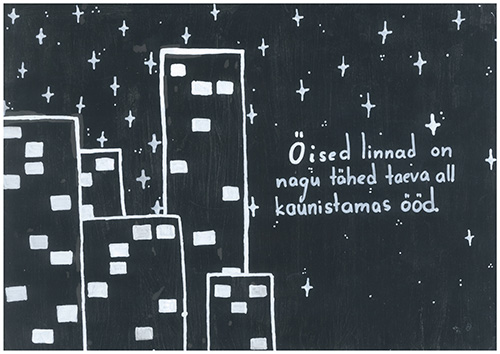 Öised linnad on
nagu tähed taeva all
kaunistamas ööd.